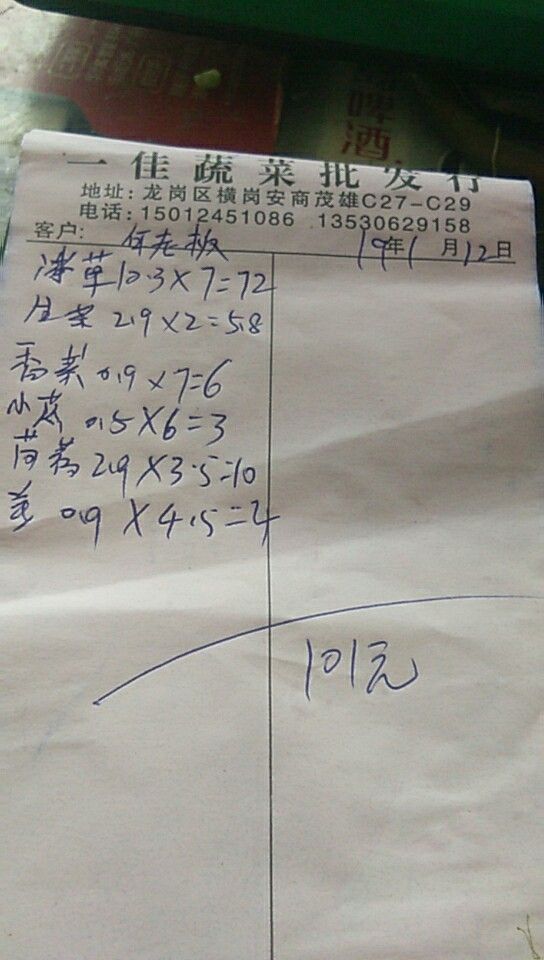 啤酒
一佳蔬菜批发行
地址:龙岗区横岗安商茂雄C27-C29
电话:15012451086 13530629158
客户: 老板 19年1月12日
冰草10.3×7=72
生菜 2.9×2=5.8
香菜 0.9×7=6
小 0.5×6=3
2.9×3.5=10
姜 0.9×4.5=4
101元